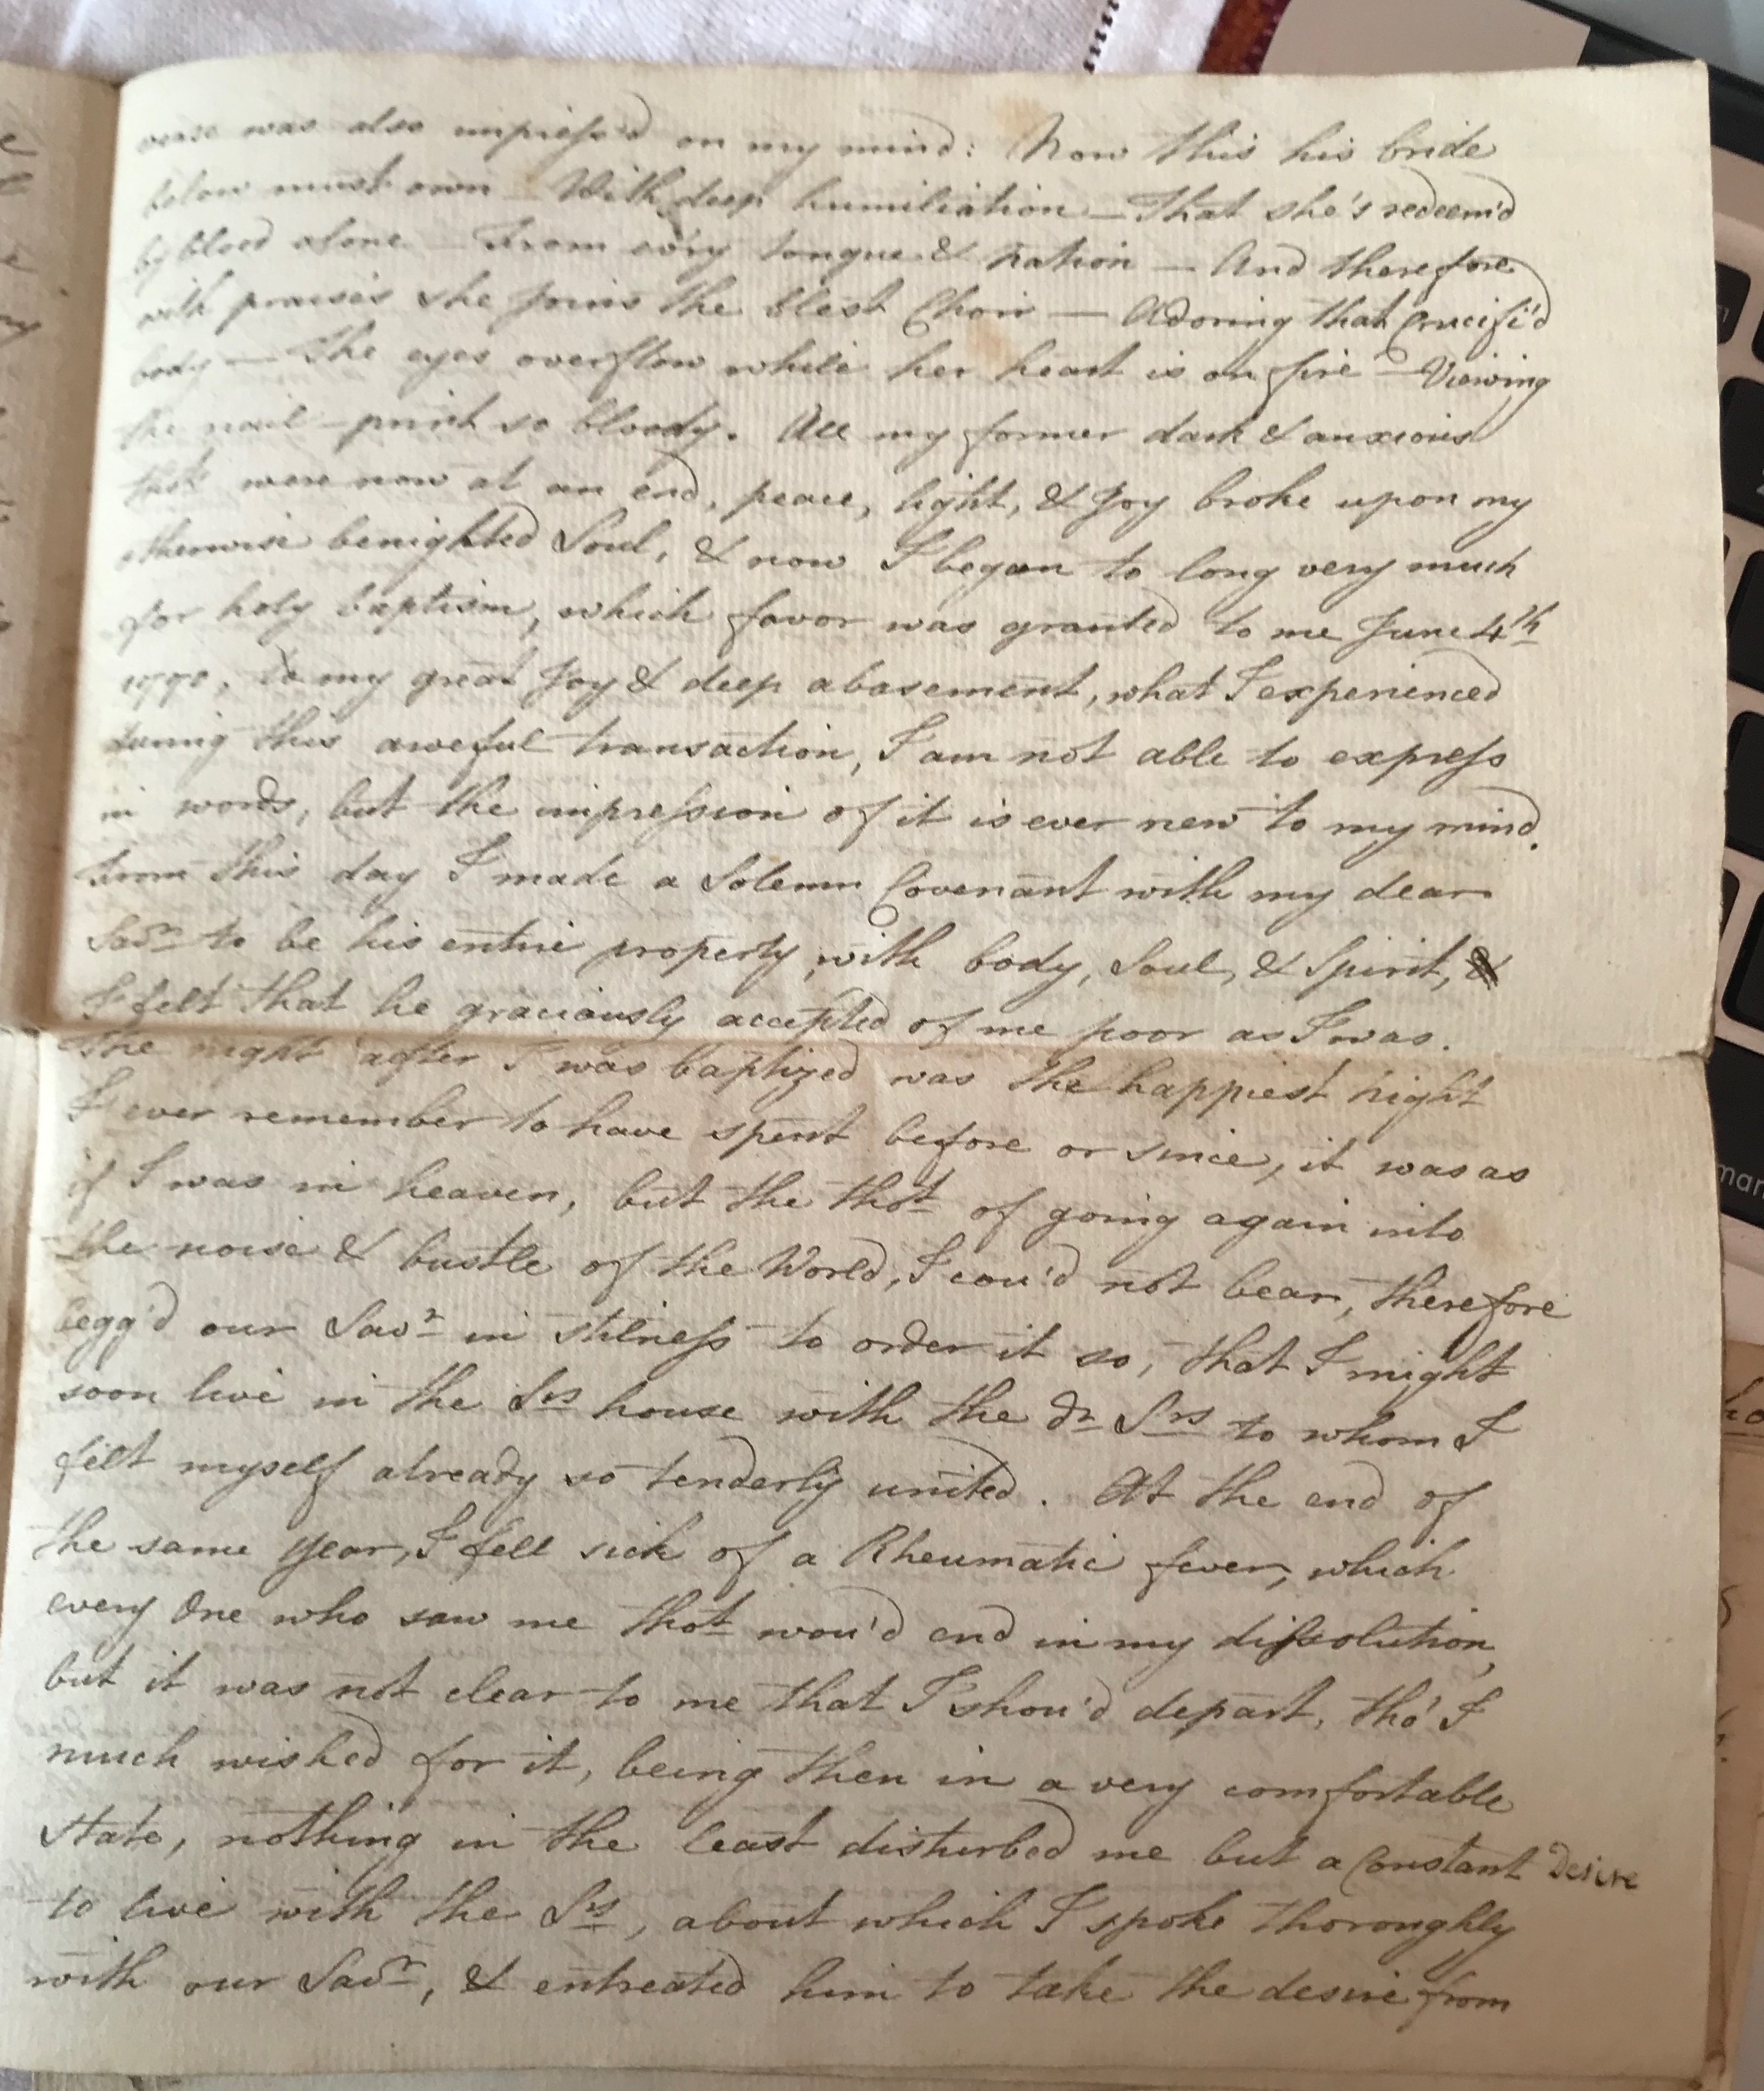 verse was also impress'd on my mind: Now this his bride
below must own — With deep humiliation — That she's redeem'd
by blood alone — From ev'ry tongue & nation — And therefore
with praises she joins the blest Choir — Adoring that Crucifi'd
body — The eyes overflow while her heart is on fire — Viewing
the nail-print so bloody. All my former dark & anxious
thots were now at an end, peace, light, & Joy broke upon my
otherwise benighted Soul, & now I began to long very much
for holy baptism, which favor was granted to me June 4th
to my great Joy & deep abasement, what I experienced
during this aweful transaction, I am not able to express
in words, but the impression of it is ever new to my mind.
From this day I made a Solemn Covenant with my dear
Savr to be his entire property, with body, Soul, & Spirit, &
I felt that he graciously accepted of me poor as I was.
The night after I was baptized was the happiest night
I ever remember to have spent before or since, it was as
if I was in heaven, but the thot of going again into
the noise & bustle of the World, I cou'd not bear, therefore
begg'd our Savr in stilness to order it so, that I might
soon live in the Srs house with the dr Srs to whom I
felt myself already so tenderly united. At the end of
the same year, I fell sick of a Rheumatic fever, which
every One who saw me thot wou'd end in my dissolution,
but it was not clear to me that I shou'd depart, tho' I
much wished for it, being then in a very comfortable
state, nothing in the least disturbed me but a Constant Desire
to live with the Srs, about which I spoke thoroughly
with our Savr, & entreated him to take the desire from